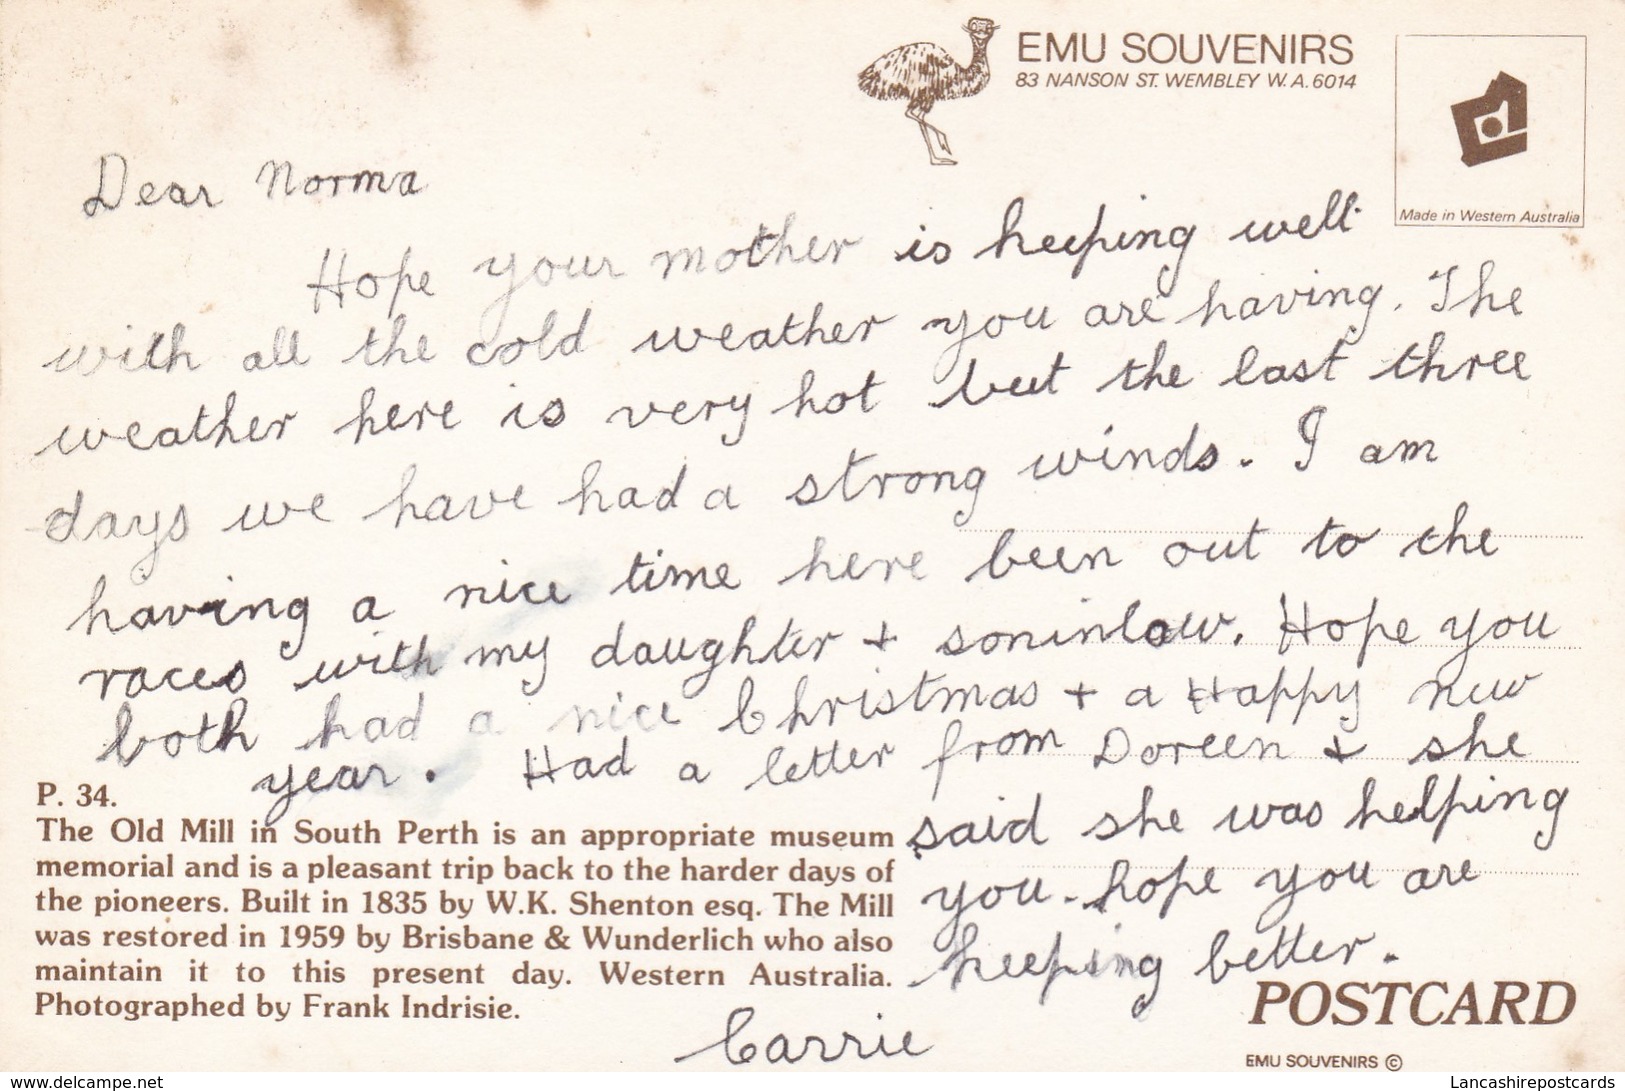 EMU SOUVENIRS
83 NANSON ST. WEMBLEY W.A. 6014
Made in Western Australia
Dear Norma
Hope your mother is keeping well
with all the cold weather you are having. The
weather here is very hot but the last three
days we have had a strong winds. I am
having a nice time here been out to the
races with my daughter + soninlaw. Hope you
both had a nice Christmas + a Happy new
year. Had a letter from Doreen + she
said she was helping
you. hope you are
keeping better.
Carrie
P. 34.
The Old Mill in South Perth is an appropriate museum
memorial and is a pleasant trip back to the harder days of
the pioneers. Built in 1835 by W.K. Shenton esq. The Mill
was restored in 1959 by Brisbane & Wunderlich who also
maintain it to this present day. Western Australia.
Photographed by Frank Indrisie.
POSTCARD
EMU SOUVENIRS ©
www.delcampe.net
Lancashirepostcards